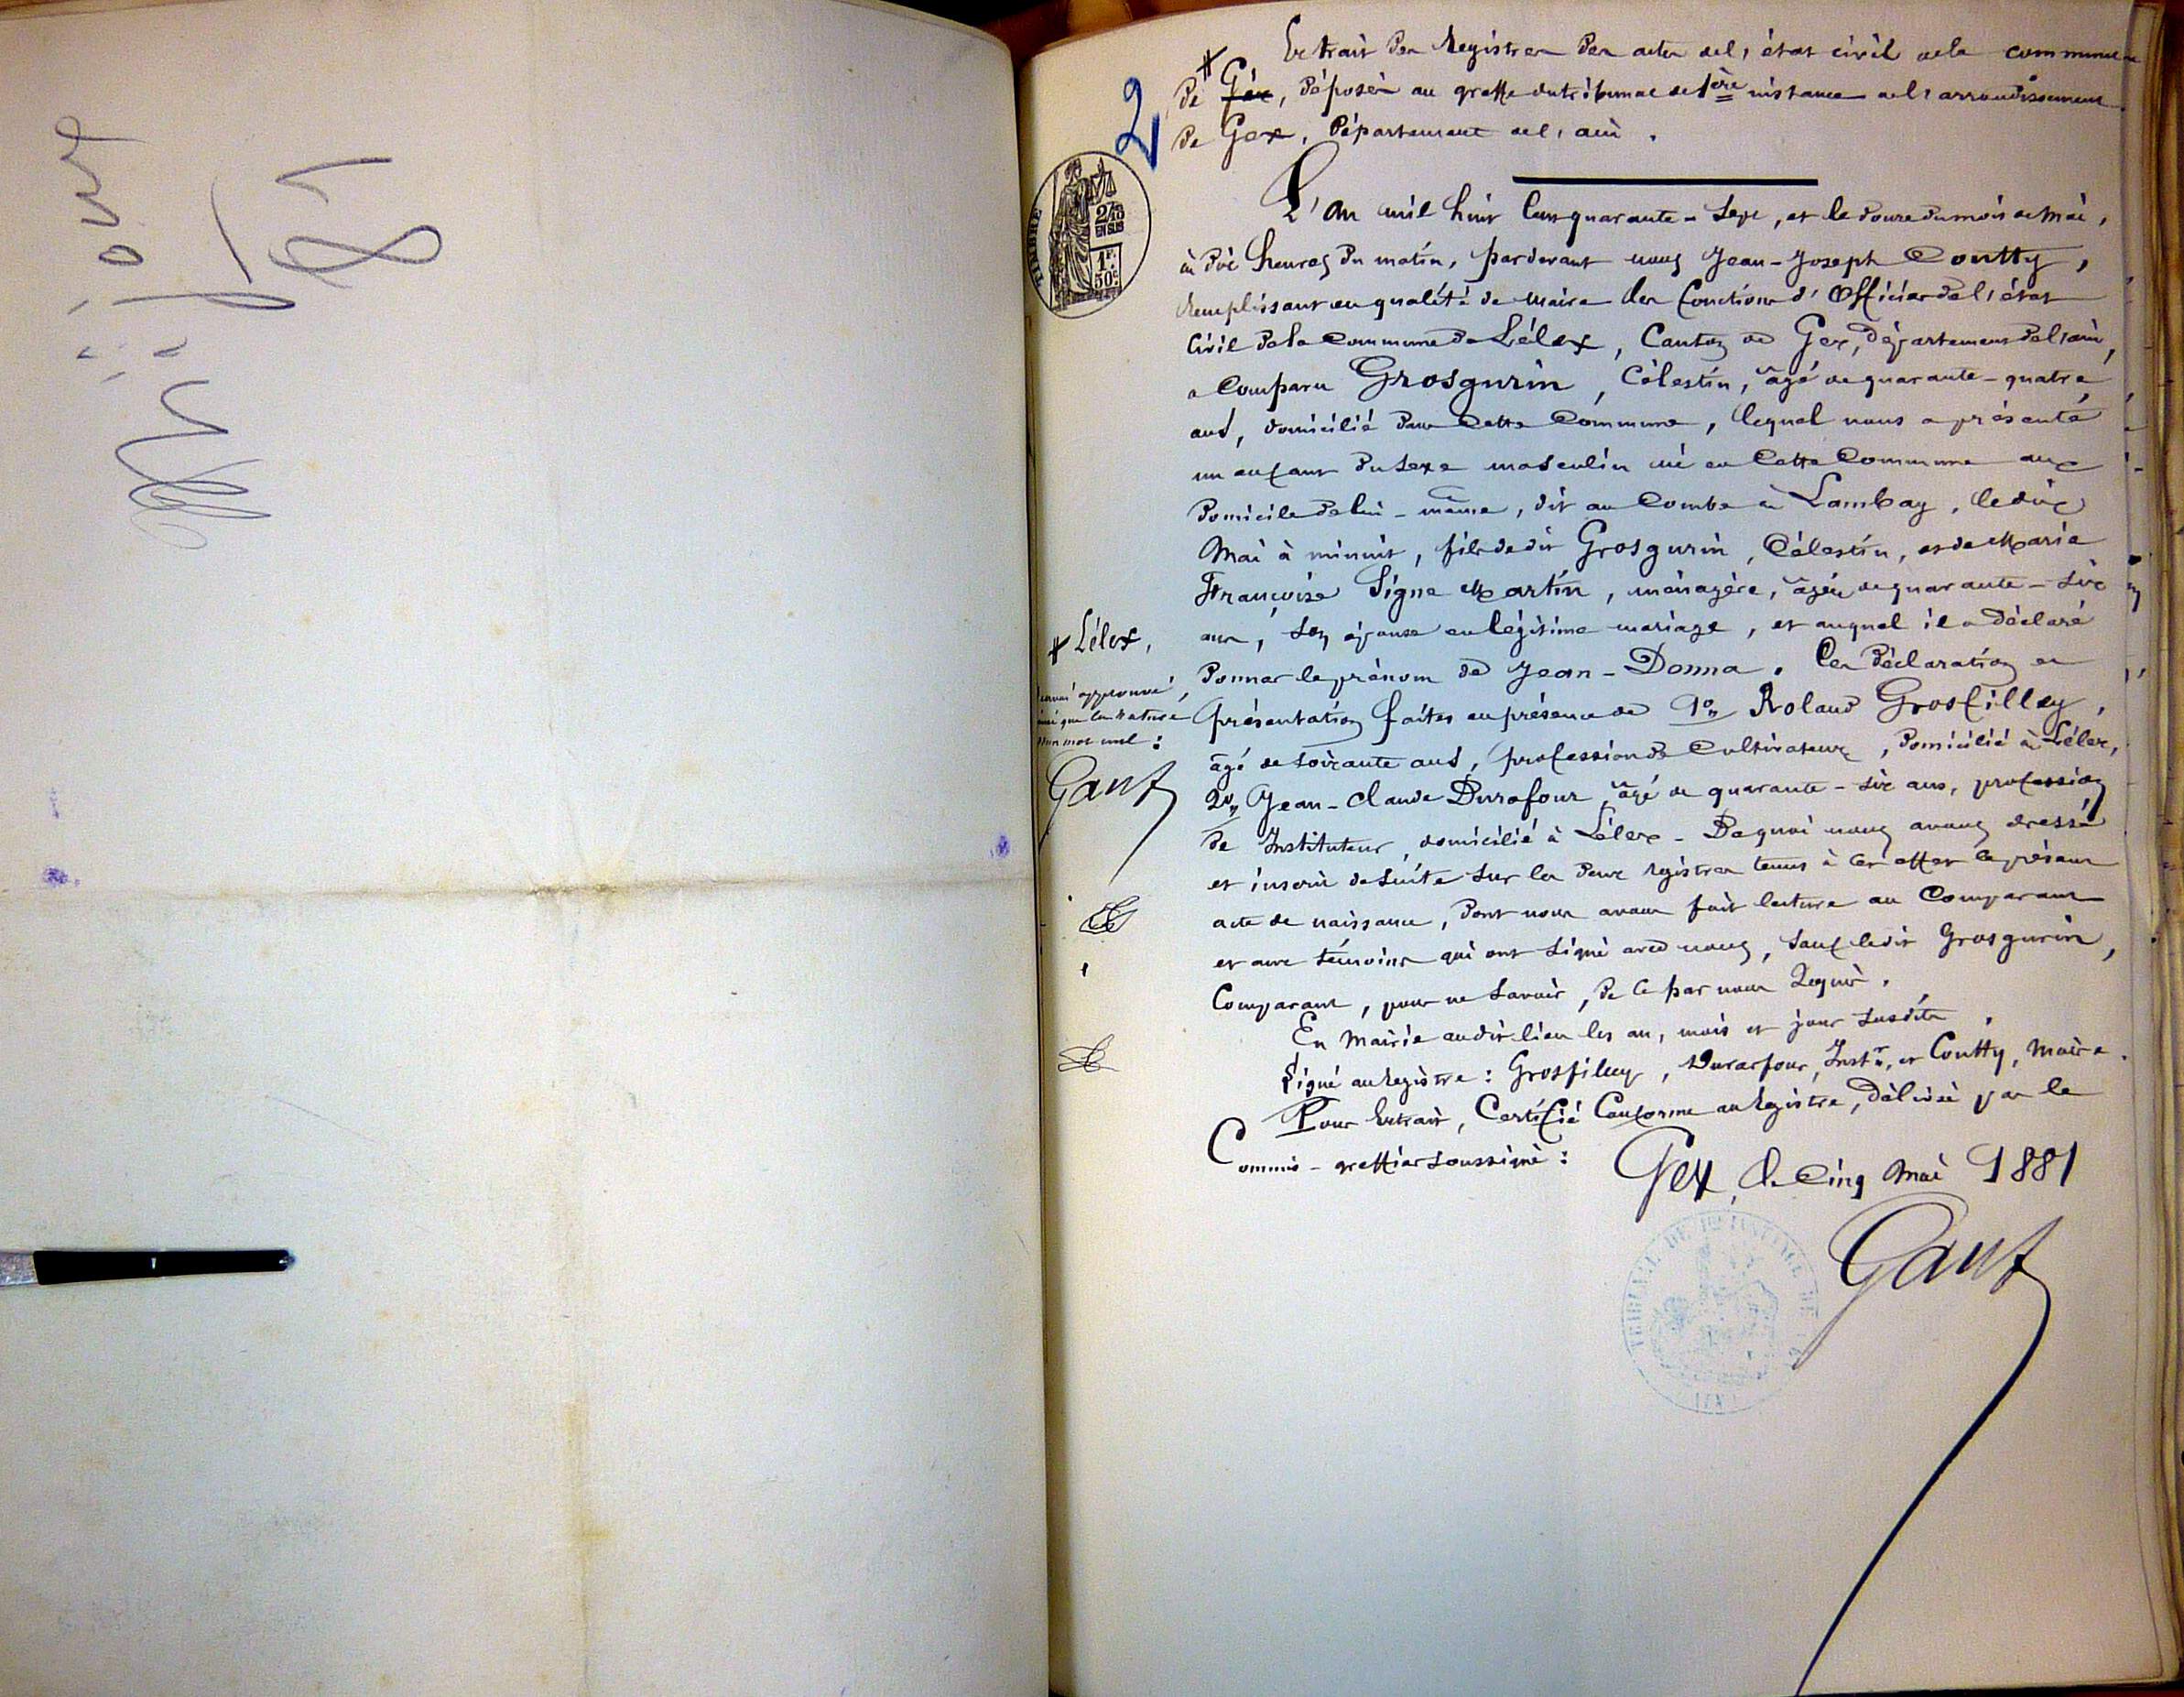 Extrait des Registres des actes de l'état civil de la commune
#
de Gex, déposés au greffe du tribunal de 1ère instance de l'arrondissement
de Gex, Département de l'ain.
2
TIMBRE
2/10
EN SUS
1F.
50C.
L'an mil huit cent quarante-sept, et le douze du mois de mai,
à dix heures du matin, pardevant nous Jean-Joseph Coutty,
Remplissant en qualité de maire les fonctions d'Officier de l'état
civil de la Commune de Lélex, Canton de Gex, département de l'ain,
a Comparu Grosgurin, Célestin, âgé de quarante-quatre
ans, domicilié dans cette Commune, lequel nous a présenté
un enfant du sexe masculin né en cette Commune au
Domicile de lui-même, dit au Combe à Lambay, le dix
Mai à minuit, fils dudit Grosgurin, Célestin, et de Marie
Françoise Signe Martin, ménagère, âgée de quarante-six
ans, son épouse en légitime mariage, et auquel il a déclaré
donner le prénom de Jean-Donna. Ces déclaration et
présentation faites en présence de 1o, Roland Grosfilley,
âgé de soixante ans, profession de Cultivateur, domicilié à Lélex,
2o, Jean-Claude Durafour, âgé de quarante-six ans, profession
de Instituteur, domicilié à Lélex - De quoi nous avons dressé
et inscrit de suite sur les deux registres tenus à cet effet le présent
acte de naissance, dont nous avons fait lecture au Comparant
et aux témoins qui ont signé avec nous, sauf ledit Grosgurin,
Comparant, pour ne savoir, de ce par nous Requis.
En Mairie audit lieu les an, mois et jour susdits.
Signé au Registre: Grosfilley, Durafour, Instr, et Coutty, Maire.
Pour Extrait, Certifié Conforme au Registre, délivré par le
Commis-greffier soussigné:
Gex, le Cinq Mai 1881
Gauf
# Lélex,
approuvé,
ainsi que la rature
d'un mot nul:
Gauf
TRIBUNAL DE 1re INSTANCE DE GEX
(AIN)